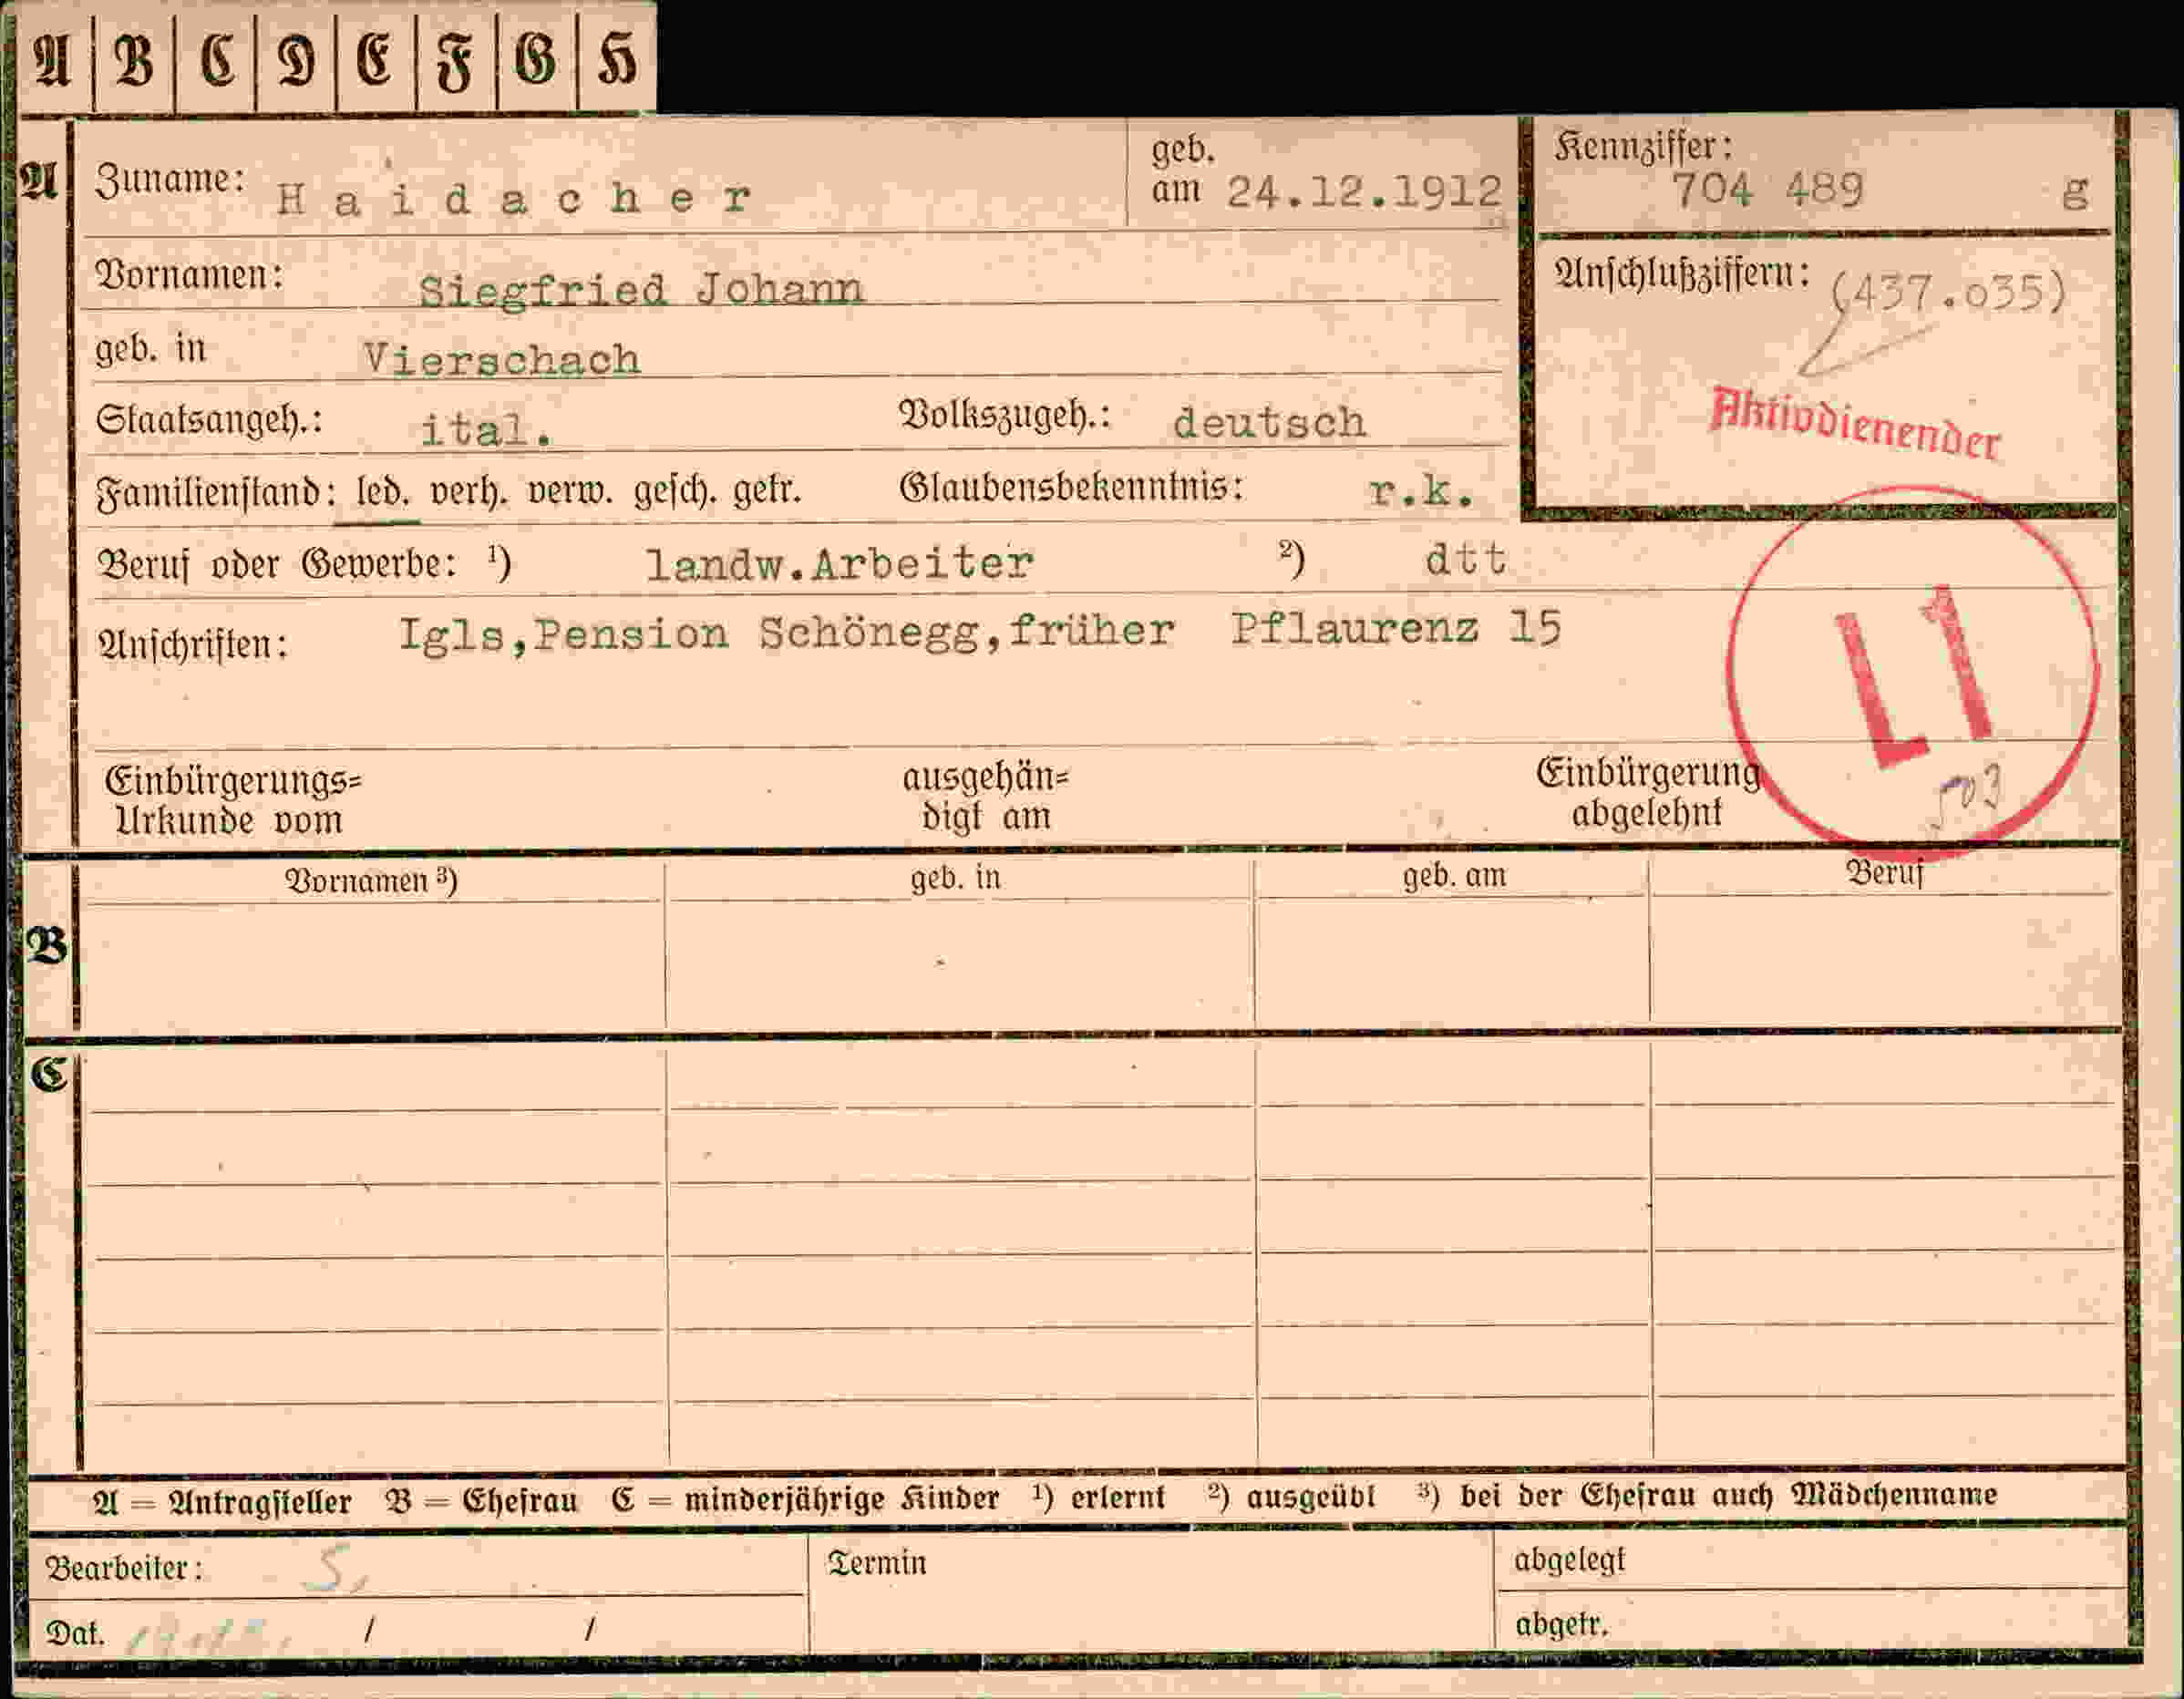 A B C D E F G H
A Zuname: Haidacher geb. am 24.12.1912 Kennziffer: 704 489 g
Vornamen: Siegfried Johann Anschlußziffern: (437.035)
geb. in Vierschach
Staatsangeh.: ital. Volkszugeh.: deutsch Aktivdienender
Familienstand: led. verh. verw. gesch. getr. Glaubensbekenntnis: r.k.
Beruf oder Gewerbe: ¹) landw.Arbeiter ²) dtt
Anschriften: Igls,Pension Schönegg,früher Pflaurenz 15
L1
Einbürgerungs= ausgehän= Einbürgerung
Urkunde vom digt am abgelehnt
Vornamen ³) geb. in geb. am Beruf
B
C
A = Antragsteller B = Ehefrau C = minderjährige Kinder ¹) erlernt ²) ausgeübt ³) bei der Ehefrau auch Mädchenname
Bearbeiter: S. Termin abgelegt
Dat. / / abgetr.